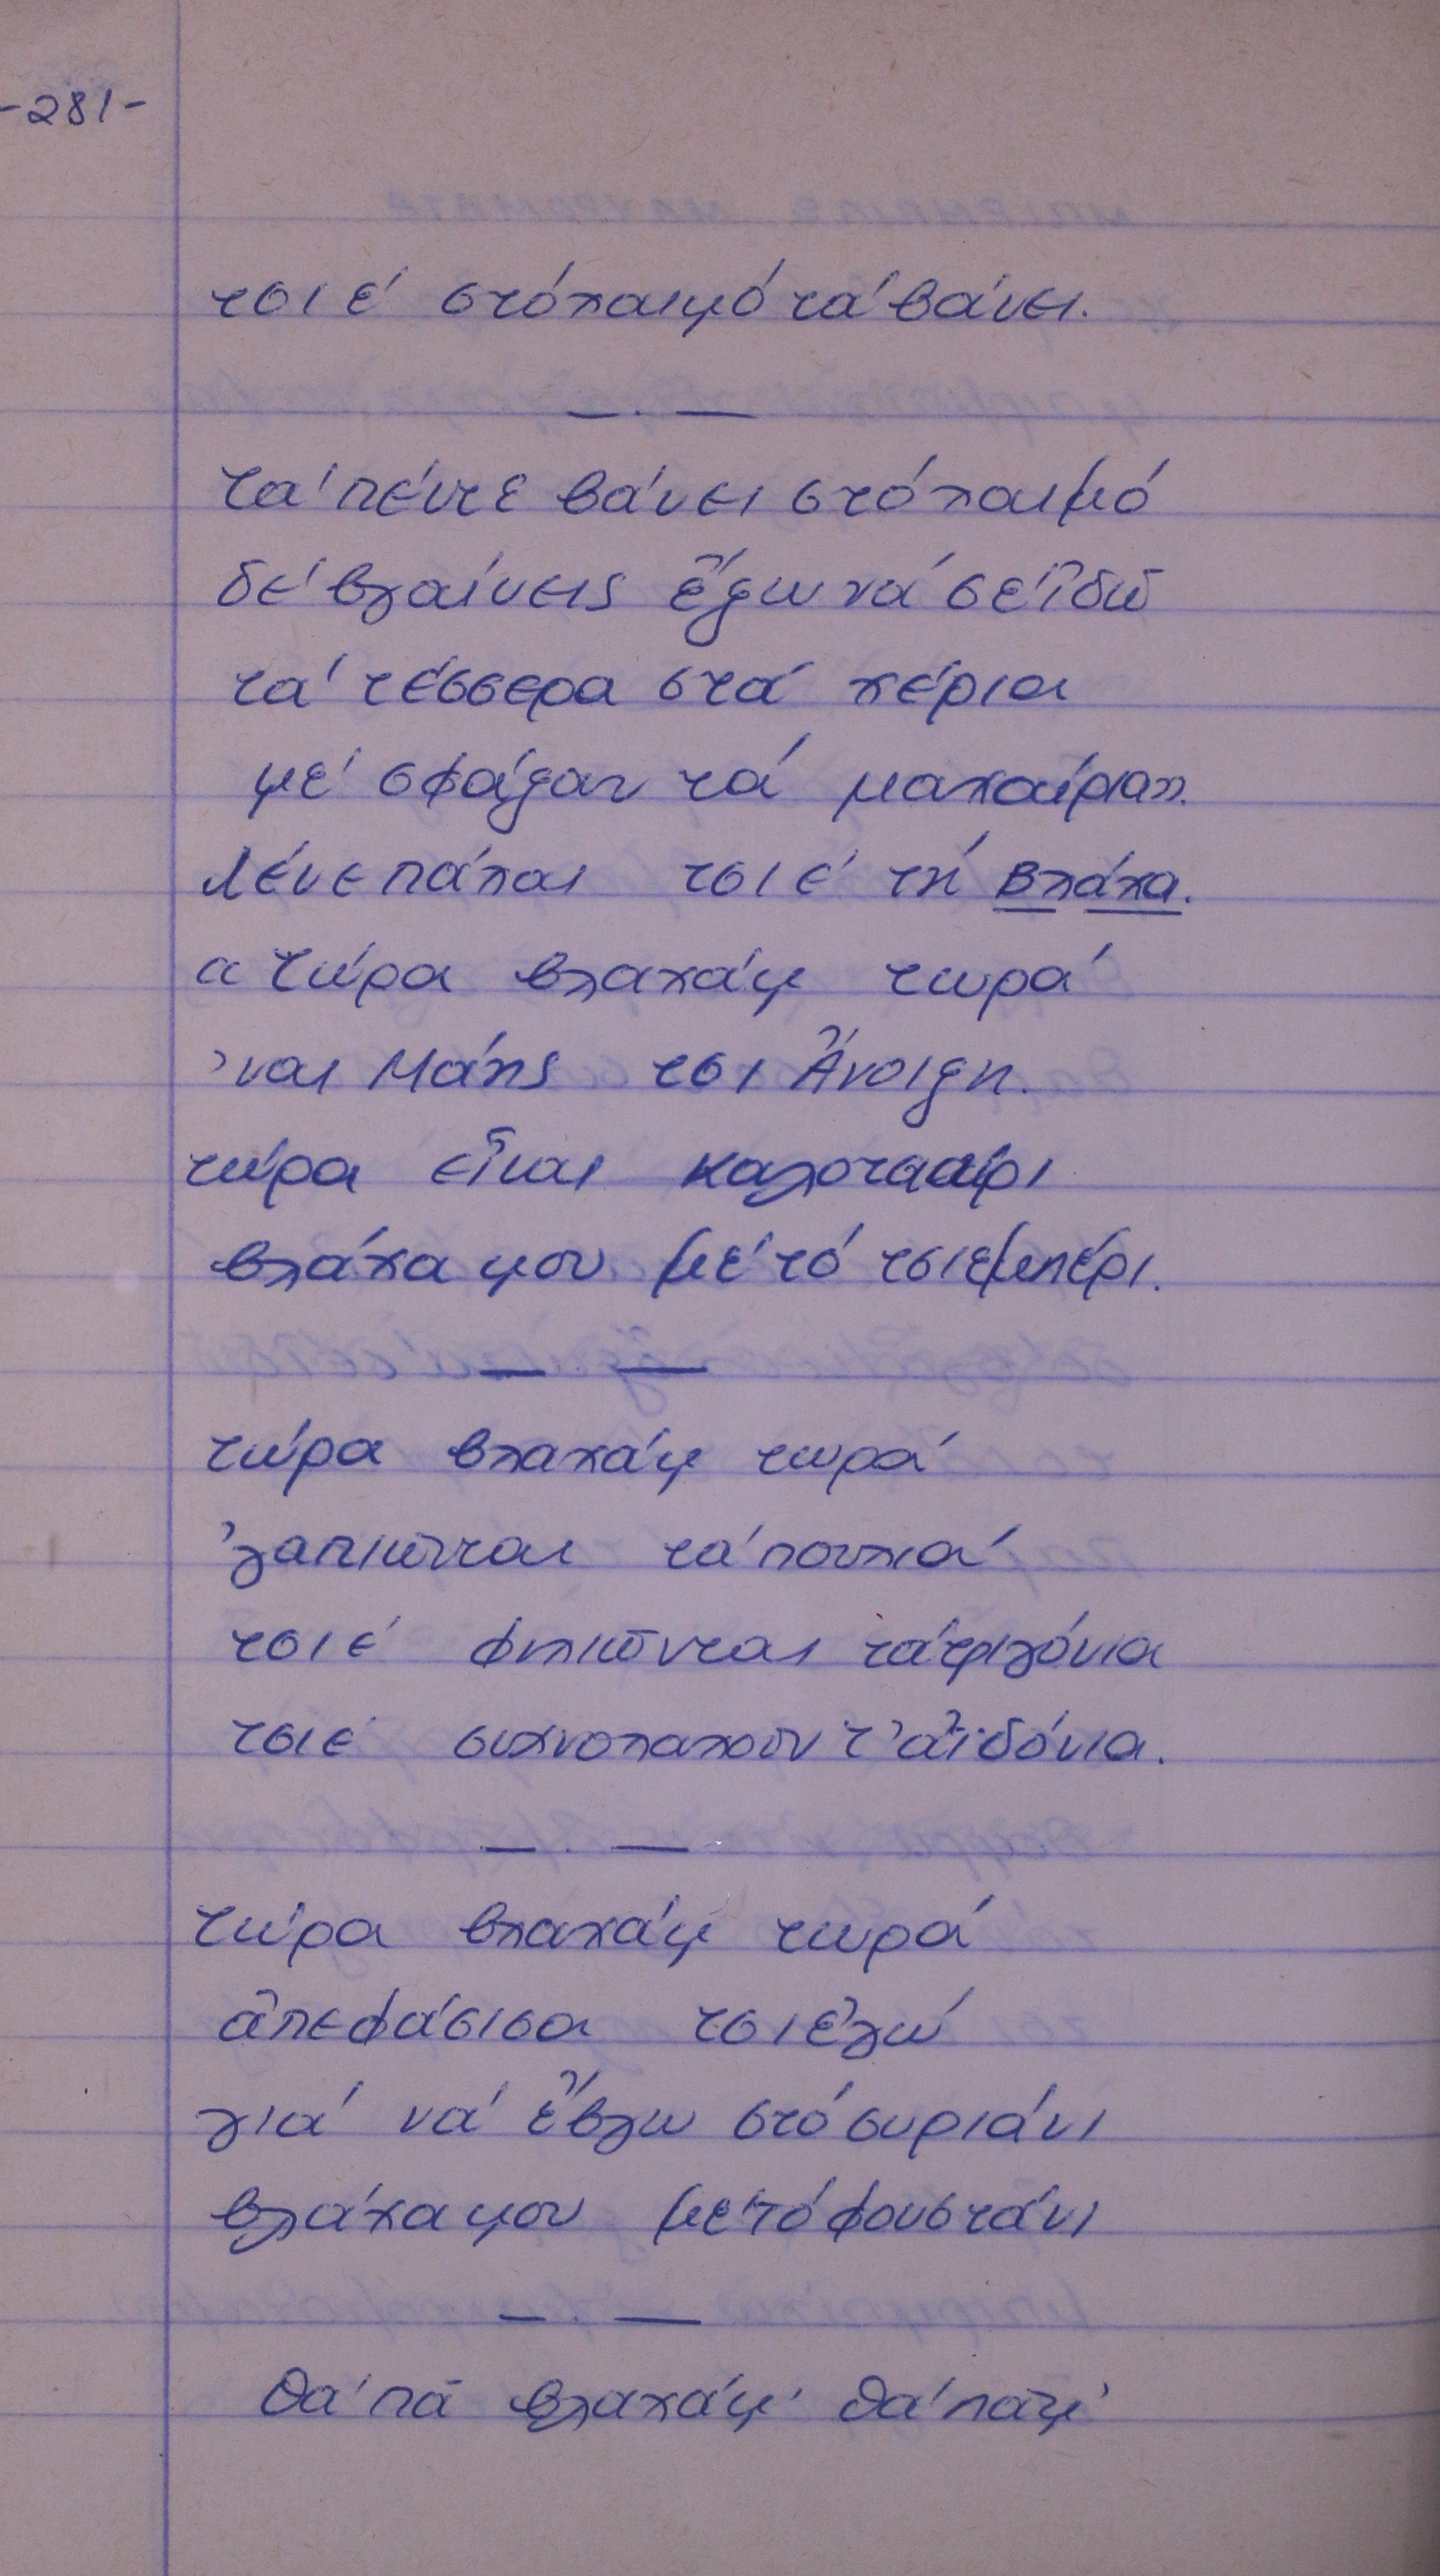 -281-
τσι έ στόλαιμό τά βάνει.
τά πέντε βάνει στόλαιμό
δέ βγαίνεις ἔξω νά σέ ἰδῶ
τά τέσσερα στά χέρια
μέ σφάξαν τά μαχαίρια».
Λένε πάλαι τσι έ τή Βλάχα.
«τώρα βλαχάμ τωρά
'ναι Μάης τσι Ἄνοιξη.
τώρα εἶναι καλοτσαίρι
βλάχα μου μέ τό τσιεμπέρι.
τώρα βλαχάμ τωρά
'γαπιῶνται τά πουλιά
τσι έ φιλιῶνται τά τριγόνια
τσιέ συχνολαλοῦν τ' ἀϊδόνια.
τώρα βλαχάμ τωρά
ἀπεφάσισα τσι ἐγώ
γιά νά ἔβγω στό συριάνι
βλάχα μου μέ τό φουστάνι
θά πᾶ βλαχάμ' θά πᾶμ'